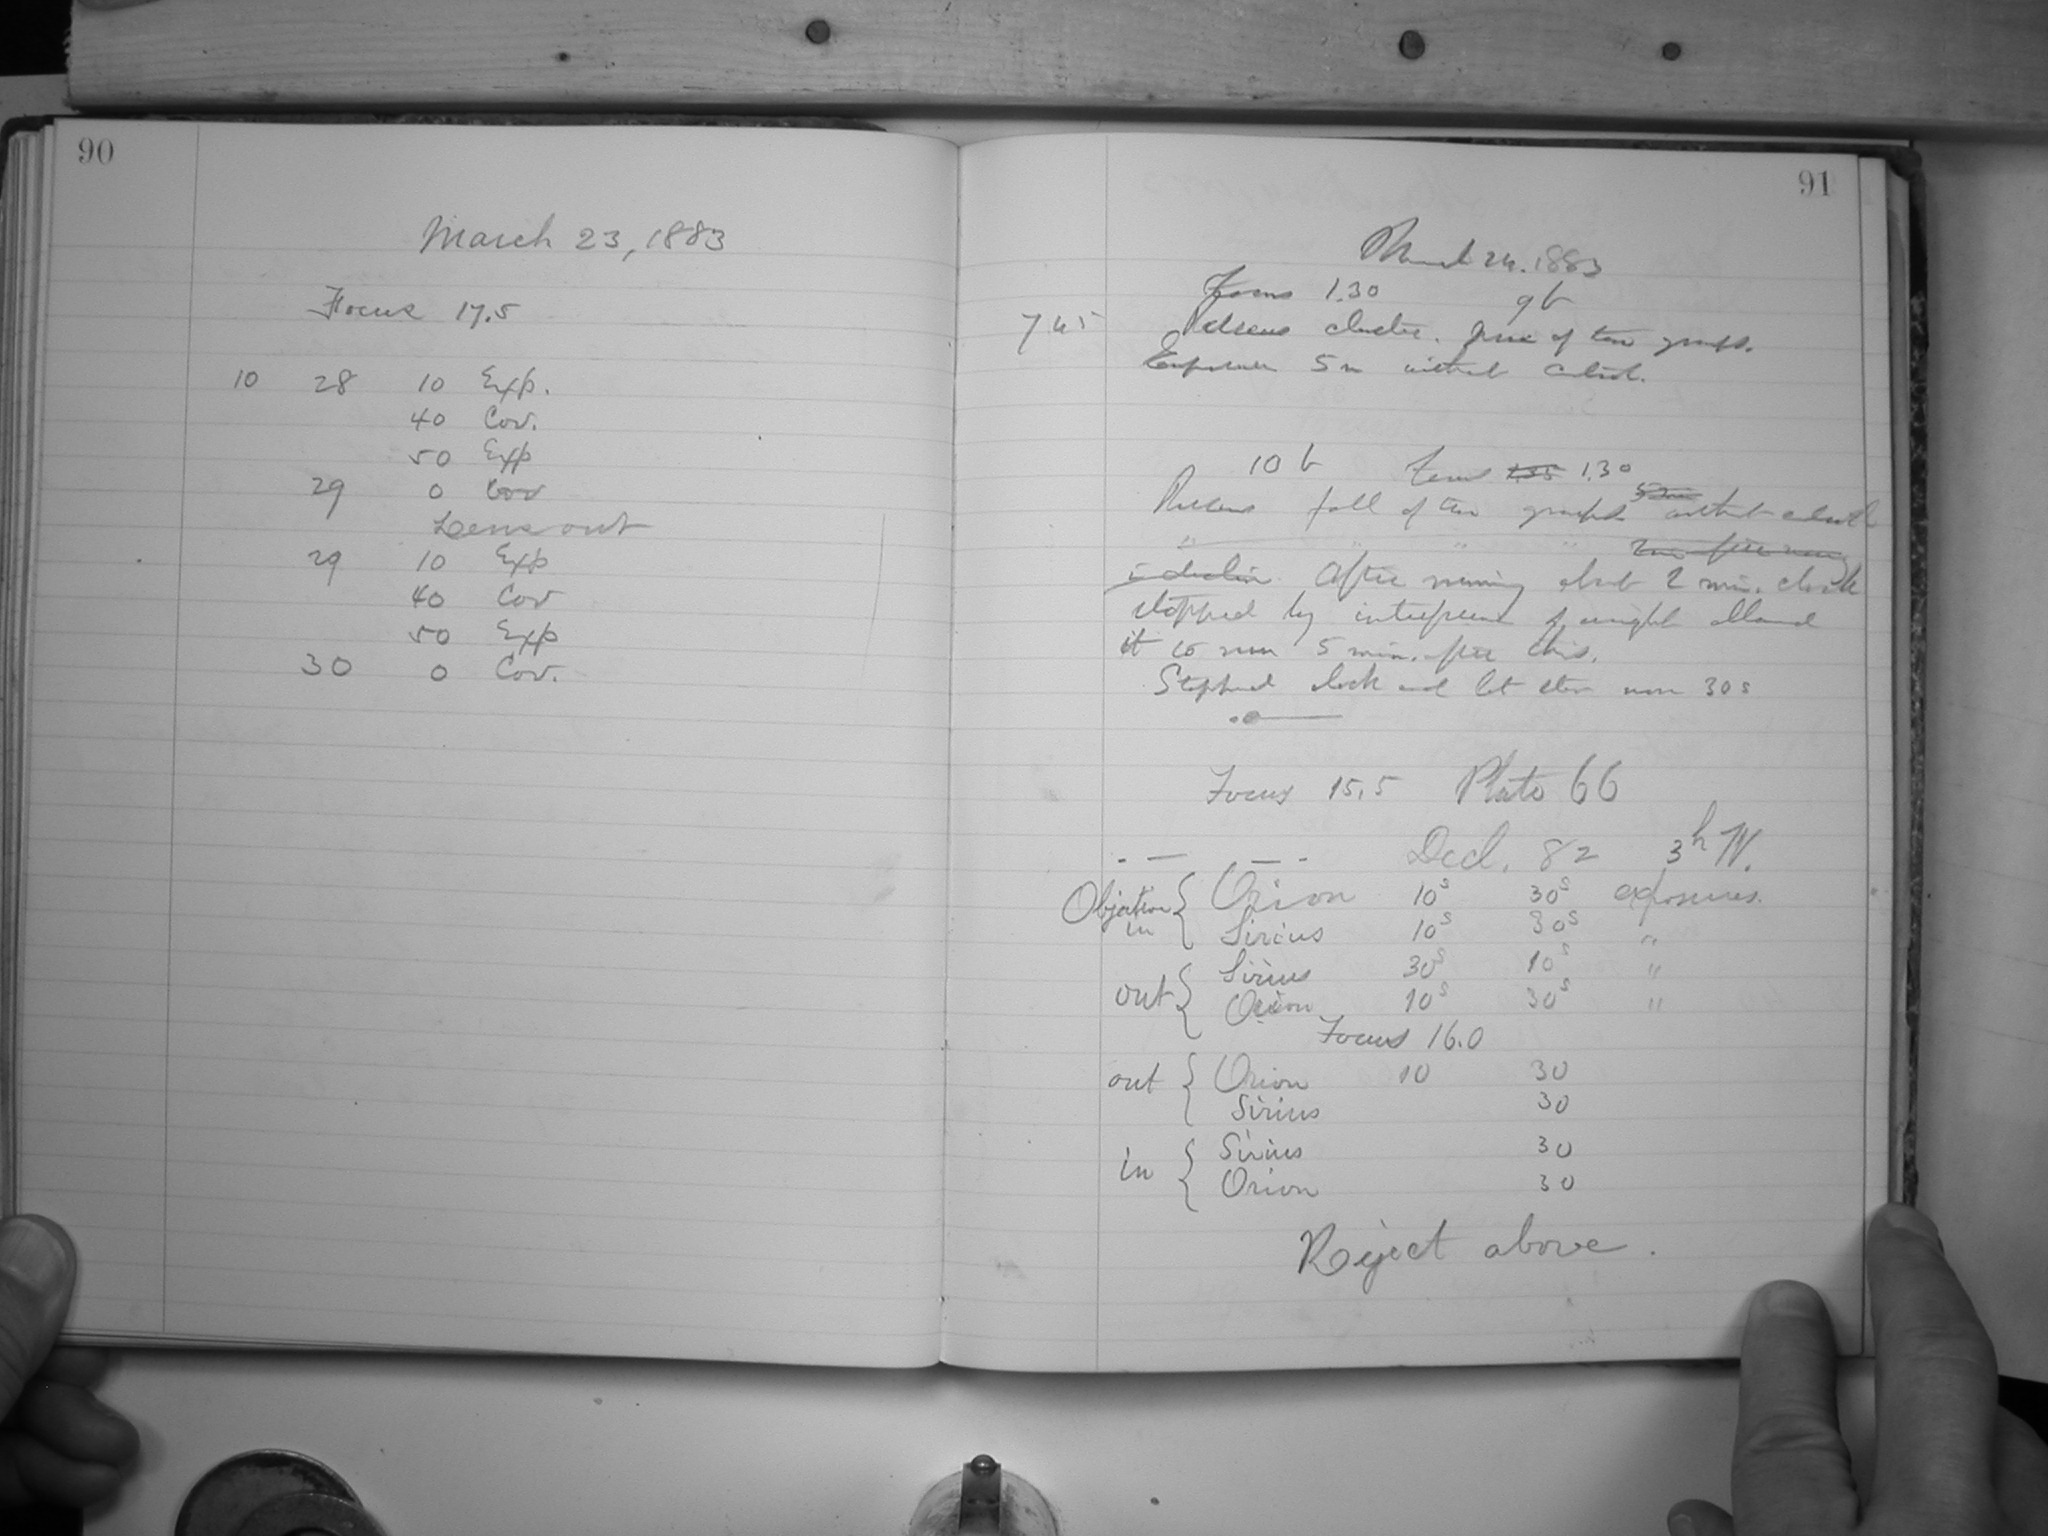 90
March 23, 1883
Focus 17.5
10 28 10 Exp.
40 Cov.
50 Exp
29 0 Cov
Lens out
29 10 Exp
40 Cov
50 Exp
30 0 Cov.
91
March 24. 1883
Focus 1.30 9b
7 45 Perseus cluster. of two groups.
Exposure 5 m without
10 b Focus 1.35 1.30
Perseus foll of two groups without clock
" " " "
After running about 2 min. clock
stopped by of weight allowed
it to run 5 min. after this.
Stopped clock and let star run 30s
Focus 15.5 Plate 66
Decl. 82 3h W.
Objective in { Orion 10s 30s exposures.
Sirius 10s 30s "
out { Sirius 30s 10s "
Orion 10s 30s "
Focus 16.0
out { Orion 10 30
Sirius 30
in { Sirius 30
Orion 30
Reject above.